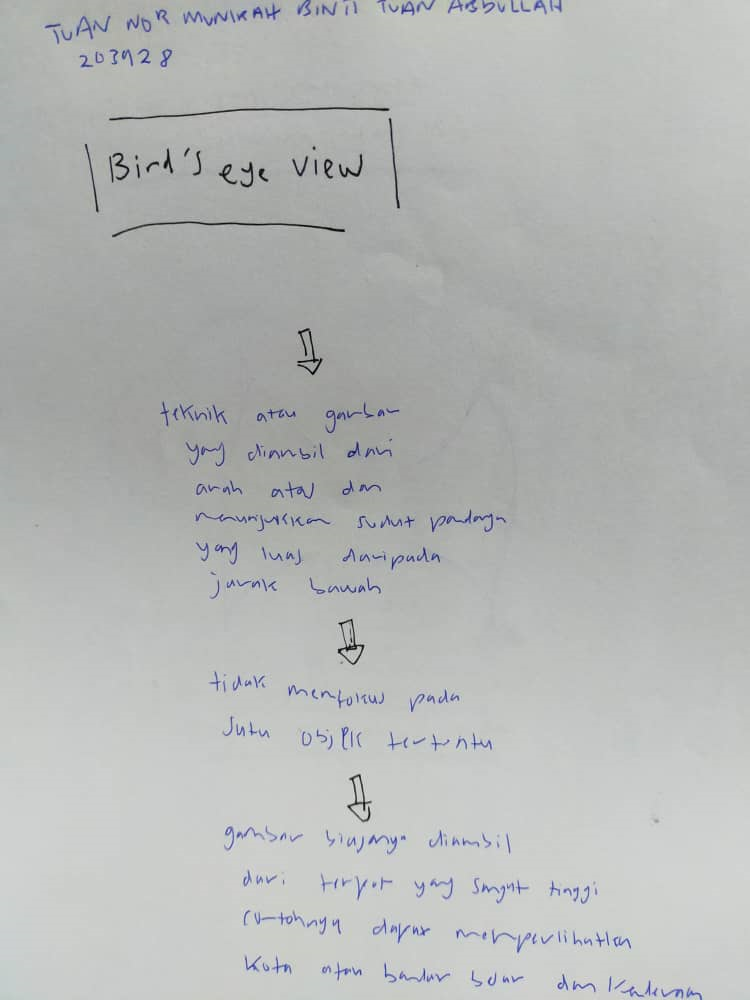 TUAN NOR MUNIRAH BINTI TUAN ABDULLAH
203928
Bird's eye view
teknik atau gambar
yang diambil dari
arah atas dan
menunjukkan sudut pandang
yang luas daripada
jarak bawah
tidak memfokus pada
suatu objek tertentu
gambar biasanya diambil
dari tempat yang sangat tinggi
contohnya dapat memperlihatkan
kota atau bandar besar dan